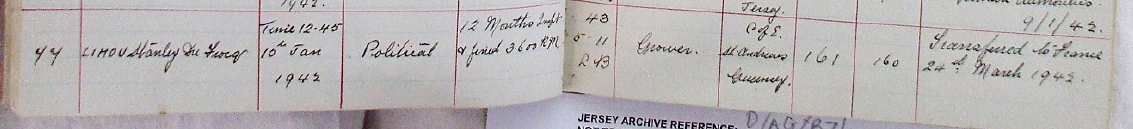 1942.
Jersey.
9/1/42.
Time 12.45
12 Months Impt
43
C of E.
Transferred to France
44
Stanley Du Frocq
10th Jan
Political
& fined 3600 R.M.
5-11
Grower.
St Andrews
161
160
24th March 1942.
1942
Guernsey.
JERSEY ARCHIVE REFERENCE: D/AG/B7/